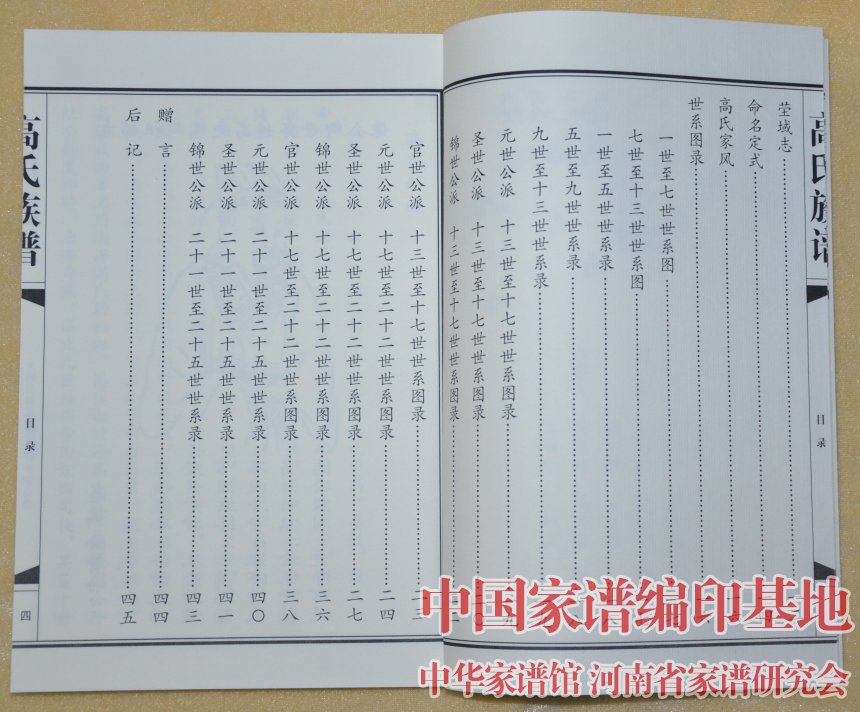 高氏族谱
目录
茔域志
命名定式
高氏家风
世系图录
一世至七世世系图
七世至十三世世系图
一世至五世世系录
五世至九世世系录
九世至十三世世系录
元世公派 十三世至十七世世系图录
圣世公派 十三世至十七世世系图录
锦世公派 十三世至十七世世系图录
官世公派 十三世至十七世世系图录……二三
元世公派 十七世至二十二世世系图录……二四
圣世公派 十七世至二十二世世系图录……二七
锦世公派 十七世至二十二世世系图录……三六
官世公派 十七世至二十二世世系图录……三八
元世公派 二十一世至二十五世世系录……四〇
圣世公派 二十一世至二十五世世系录……四一
锦世公派 二十一世至二十五世世系录……四三
赠言……四四
后记……四五
高氏族谱
目录
四
中国家谱编印基地
中华家谱馆 河南省家谱研究会